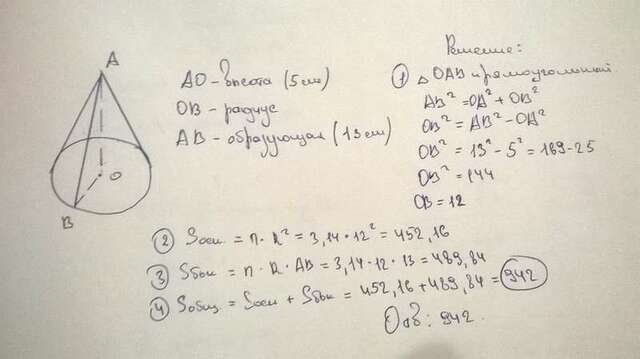 A
O
B
AO - высота (5 см)
OB - радиус
AB - образующая (13 см)
Решение:
① △OAB прямоугольный.
AB² = OA² + OB²
OB² = AB² - OA²
OB² = 13² - 5² = 169 - 25
OB² = 144
OB = 12
② Sосн = π · R² = 3,14 · 12² = 452,16
③ Sбок = π · R · AB = 3,14 · 12 · 13 = 489,84
④ Sобщ = Sосн + Sбок = 452,16 + 489,84 = 942
Отв: 942.